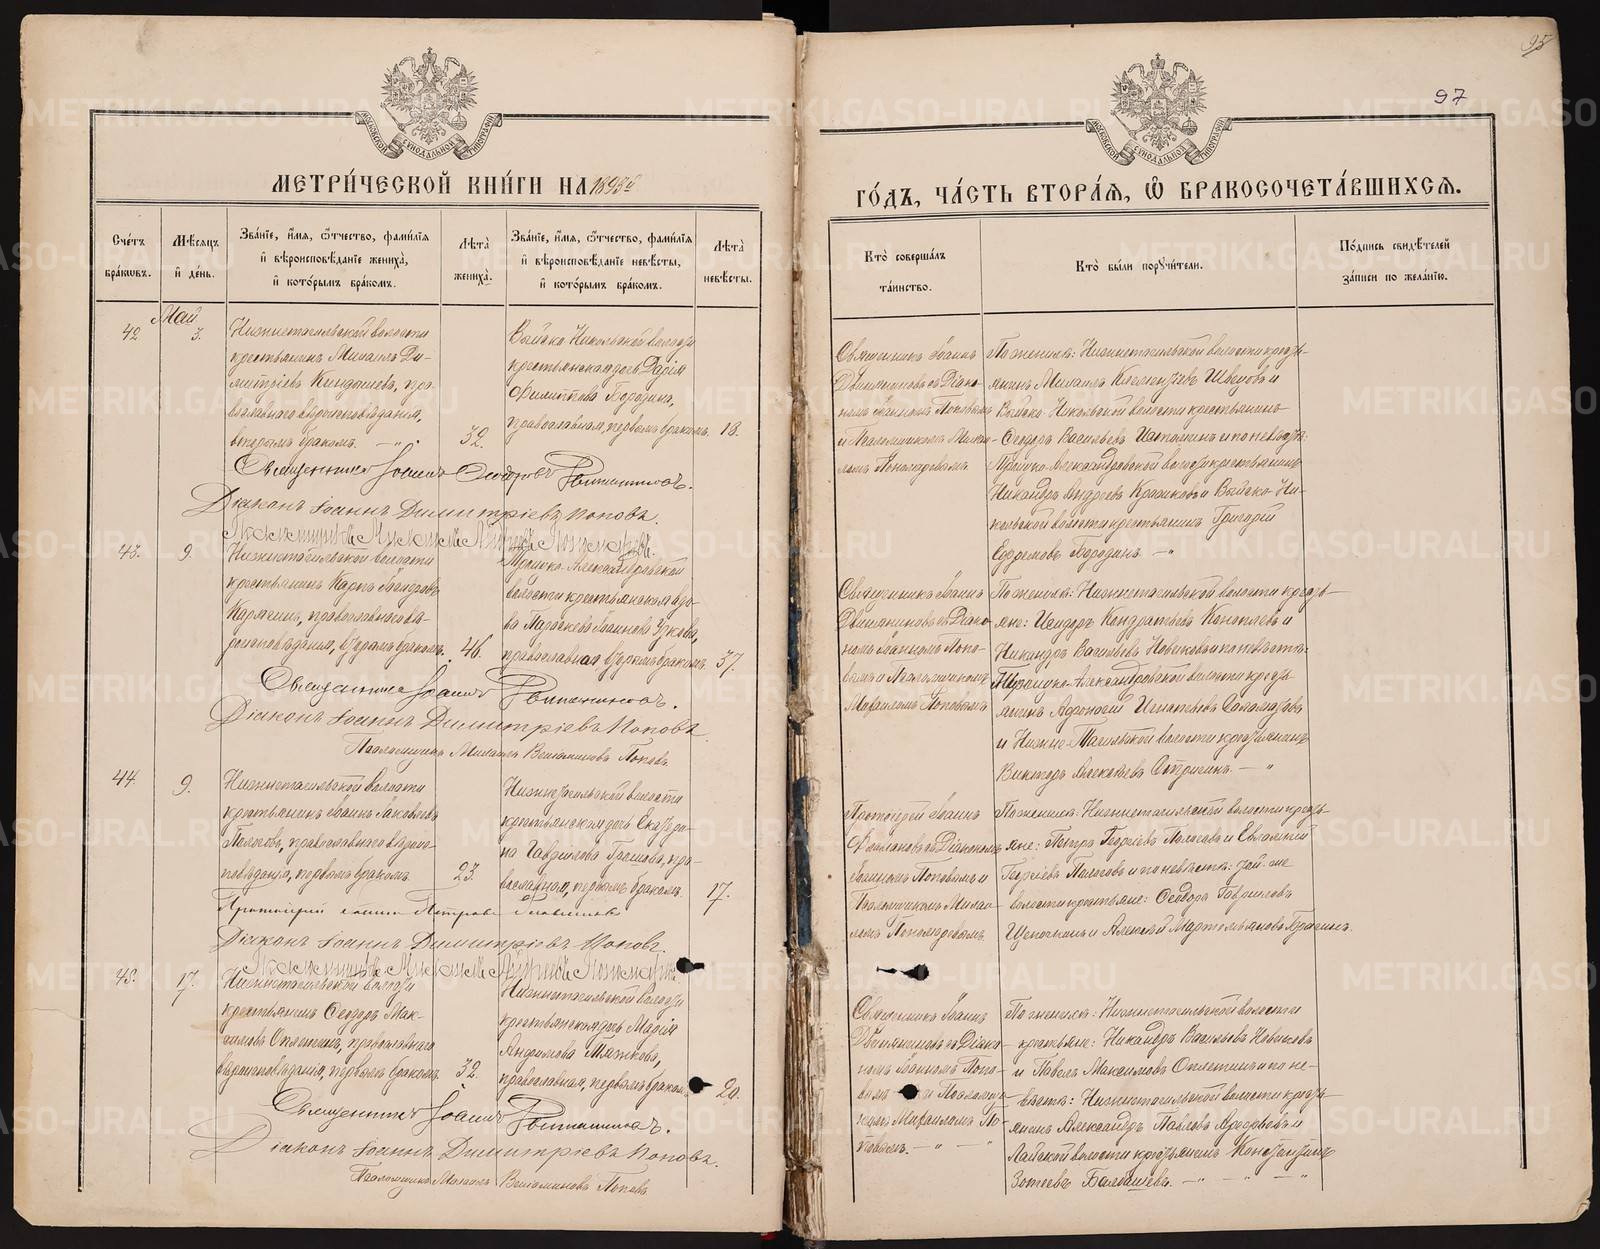 95
97
МЕТРИ́ЧЕСКОЙ КНИ́ГИ НА 1895й
ГО́ДЪ, ЧА́СТЬ ВТОРА́Ѧ, Ѽ БРАКОСОЧЕТА́ВШИХСѦ.
Сче́тъ бра́ковъ.
Мѣ́сяцъ и́ де́нь.
Зва́нїе, и́мя, ѻ́тчество, фами́лїя и́ вѣроисповѣ́данїе жениха̀, и́ кото́рымъ бра́комъ.
Лѣ́та жениха̀.
Зва́нїе, и́мя, ѻ́тчество, фами́лїя и́ вѣроисповѣ́данїе невѣ́сты, и́ кото́рымъ бра́комъ.
Лѣ́та невѣ́сты.
Кто̀ соверша́лъ та́инство.
Кто̀ бы́ли поручи́тели.
По́дпись свидѣ́телей за́писи по жела́нїю.
Май
42
3.
Нижнетагильской волости
крестьянинъ Михаилъ Ди-
митріевъ Киндашевъ, пра-
вославнаго вѣроисповѣданія,
вторымъ бракомъ.
32.
Выйско-Никольской волости
крестьянская дочь Дарія
Филиппова Бородина,
православная, первымъ бракомъ.
18.
Священникъ Іоаннъ
Діакономъ Іоанномъ Поповымъ
и Псаломщикомъ Михаи-
ломъ Пономаревымъ.
По женихѣ: Нижнетагильской волости кресть-
янинъ Михаилъ Климентовъ Швецовъ и
Выйско-Никольской волости крестьянинъ
Ѳеодоръ Васильевъ и по невѣстѣ:
Троицко-Александровской волости крестьянинъ
Никандръ Андреевъ и Выйско-Ни-
кольской волости крестьянинъ Григорій
Ефремовъ Бородинъ.
Діаконъ Іоаннъ Димитріевъ Поповъ.
43.
9.
Нижнетагильской волости
крестьянинъ Карпъ
православнаго вѣ-
роисповѣданія, вторымъ бракомъ.
46.
Троицко-Александровской
волости крестьянская вдо-
ва Параскева Іоаннова Зуева,
православная, вторымъ бракомъ.
37.
Священникъ Іоаннъ
номъ Іоанномъ Попо-
вымъ и Псаломщикомъ
Михаиломъ Поповымъ
По женихѣ: Нижнетагильской волости кресть-
яне: Исидоръ Кондратьевъ Коноплевъ и
Никандръ Васильевъ Новиковъ и по невѣстѣ:
Троицко-Александровской волости кресть-
янинъ Афанасій Игнатьевъ
и Нижне-Тагильской волости крестьянинъ
Викторъ Алексѣевъ
Діаконъ Іоаннъ Димитріевъ Поповъ
Псаломщикъ Михаилъ Веніаминовъ Поповъ.
44.
9.
Нижнетагильской волости
крестьянинъ Іоаннъ Іаковлевъ
Пологовъ, православнаго вѣроис-
повѣданія, первымъ бракомъ
23.
Нижнетагильской волости
крестьянская дочь Екатери-
на Гаврилова пра-
вославная, первымъ бракомъ.
17.
Протоіерей Іоаннъ
Флавіановъ съ Діакономъ
Іоанномъ Поповымъ и
Псаломщикомъ Михаи-
ломъ Пономаревымъ.
По женихѣ: Нижнетагильской волости кресть-
яне: Петръ Георгіевъ Пологовъ и Евлампій
Георгіевъ Пологовъ и по невѣстѣ: той-же
волости крестьяне: Ѳеодоръ Гавриловъ
Щепочкинъ и Алексѣй Мартемьяновъ
Протоіерей Іоаннъ Петровъ Флавіановъ
Діаконъ Іоаннъ Димитріевъ Поповъ.
45.
17.
Нижнетагильской волости
крестьянинъ Ѳеодоръ Мак-
симовъ Оплетинъ, православнаго
вѣроисповѣданія, первымъ бракомъ.
32.
Нижнетагильской волости
крестьянская дочь Марія
православная, первымъ бракомъ.
20.
Священникъ Іоаннъ
номъ Іоанномъ Попо-
вымъ и Псаломщи-
комъ Михаиломъ По-
повымъ.
По женихѣ: Нижнетагильской волости
крестьяне: Никандръ Васильевъ Новиковъ
и Павелъ Максимовъ Оплетинъ и по не-
вѣстѣ: Нижнетагильской волости кресть-
янинъ Александръ Павловъ Арефьевъ и
Лайской волости крестьянинъ Константинъ
Зотеевъ Балдышевъ.
Діаконъ Іоаннъ Димитріевъ Поповъ.
Псаломщикъ Михаилъ Веніаминовъ Поповъ
METRIKI.GASO-URAL.RU